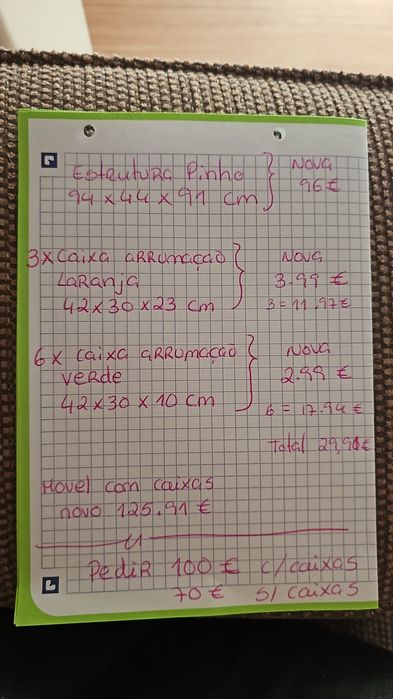 Estrutura Pinho
94 x 44 x 91 cm
Nova
96 €
3x caixa arrumação
Laranja
42 x 30 x 23 cm
Nova
3.99 €
3 = 11.97 €
6x caixa arrumação
verde
42 x 30 x 10 cm
Nova
2.99 €
6 = 17.94 €
Total 29,91 €
Movel com caixas
novo 125.91 €
Pedir 100 € c/caixas
70 € s/ caixas